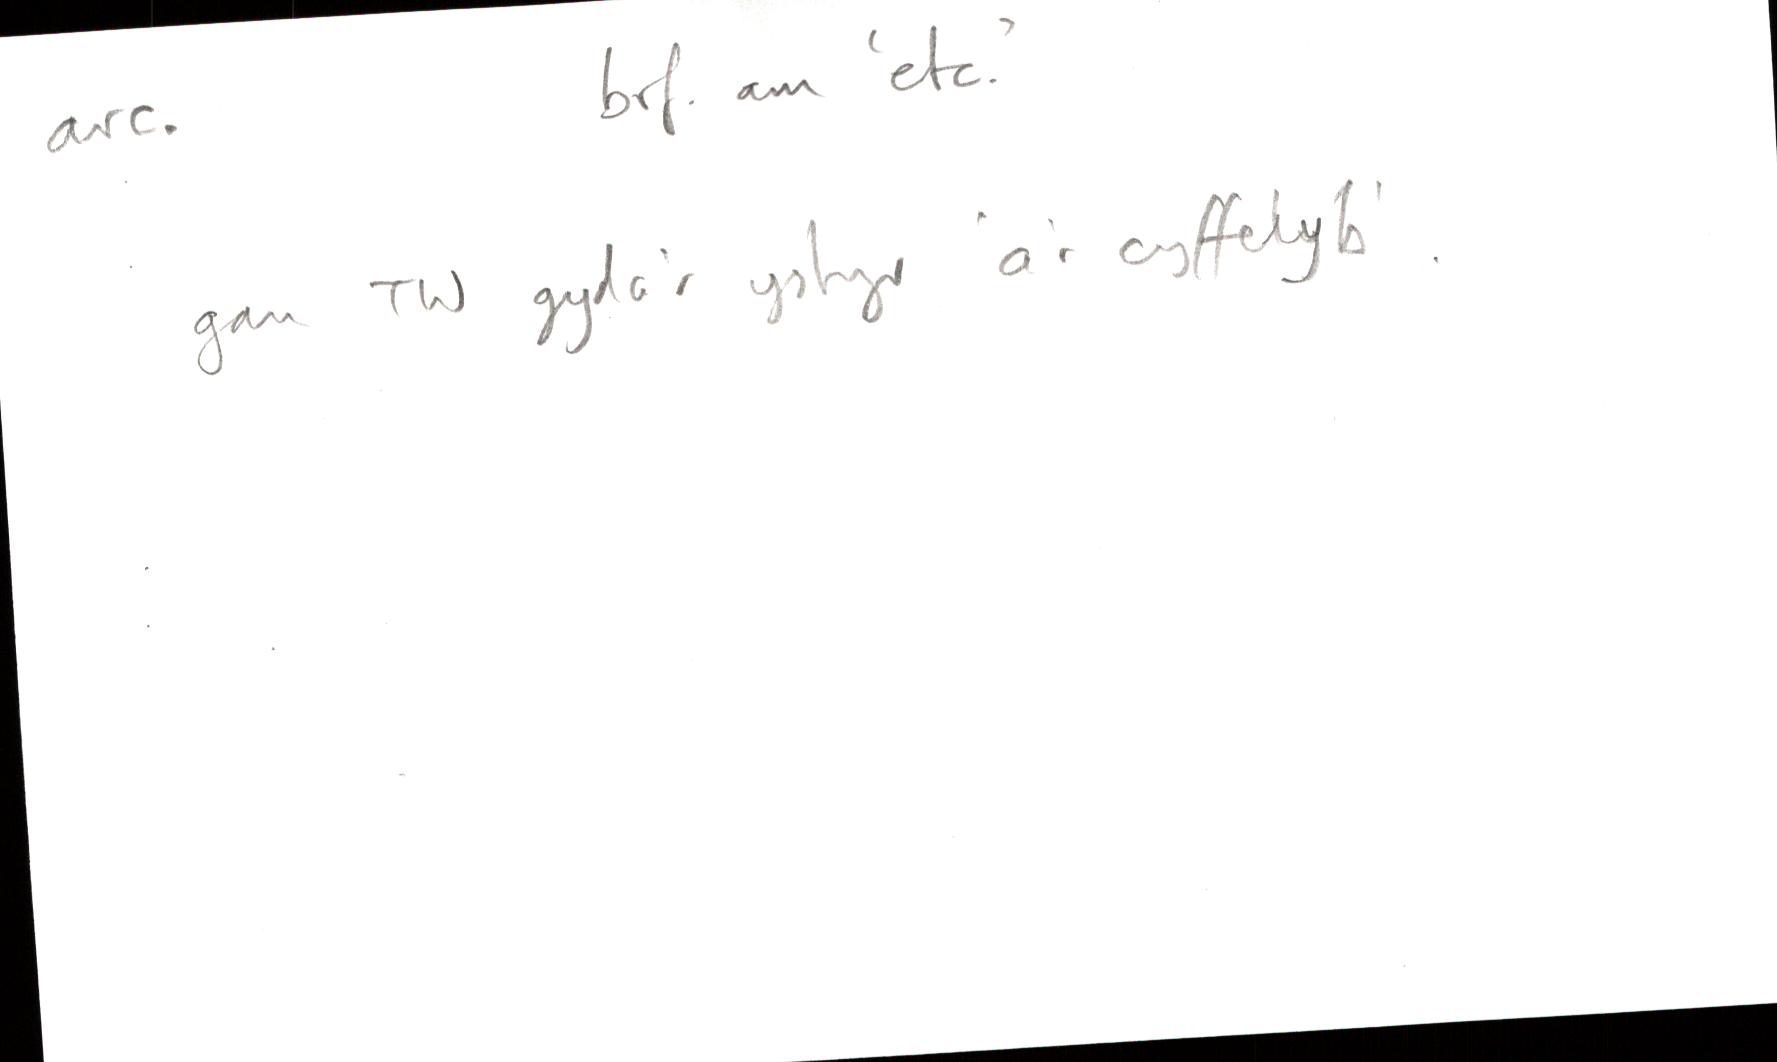 arc. brf. am 'etc.'
gan TW gyda'r ystyr 'a'r cyffelyb'.